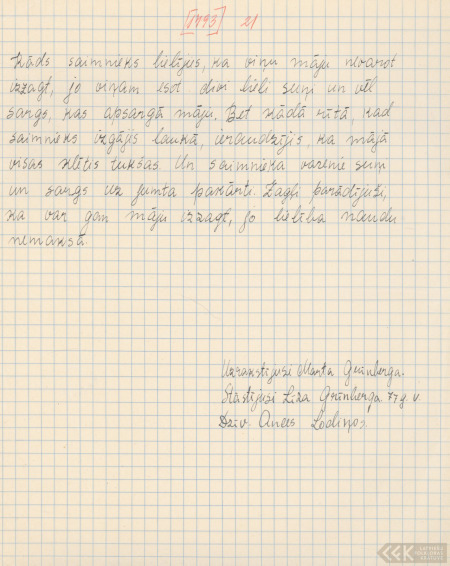 [1493] 21
Kāds saimnieks lielījies, ka viņu māju nevarot
izzagt, jo viņam esot divi lieli suņi un vēl
sargs, kas apsargā māju. Bet kādā rītā, kad
saimnieks izgājis laukā, ieraudzījis, ka mājā
visas klētis tukšas. Un saimnieka varenie suņi
un sargs uz jumta pakārti. Zagļi parādījuši,
ka var gan māju izzagt, jo lielība naudu
nemaksā.
Uzrakstījusi Marta Grünberga.
Stāstījusi Līza Grünberga 77 g. v.
Dzīv. Ances Lodiņos.
LATVIEŠU
FOLKLORAS
KRĀTUVE